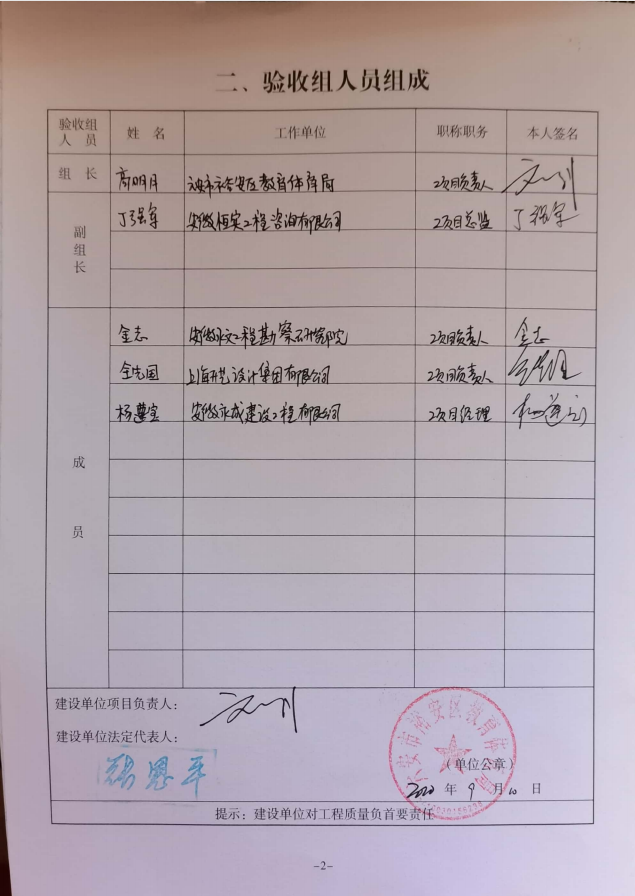 二、验收组人员组成
验收组人员 姓 名 工作单位 职称职务 本人签名
组 长 高明月 六安市裕安区教育体育局 项目负责人
副组长 丁强军 安徽恒实工程咨询有限公司 项目总监 丁强军
成员 金志 安徽水文工程勘察研究院 项目负责人 金志
上海开艺设计集团有限公司 项目负责人
安徽永成建设工程有限公司 项目经理
建设单位项目负责人:
建设单位法定代表人:
张恩平
六安市裕安区教育体育局
(单位公章)
2020 年 9 月 10 日
提示: 建设单位对工程质量负首要责任
-2-